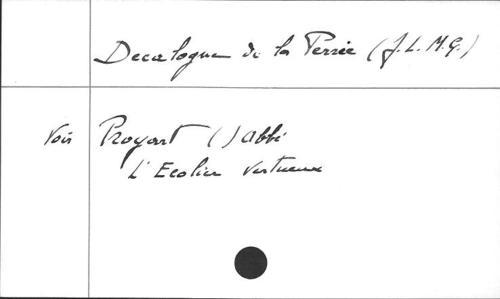 Decalogne de la Perrée (J.L.M.G.)
Voir Proyart ( ) abbé
L'Ecolier vertueux